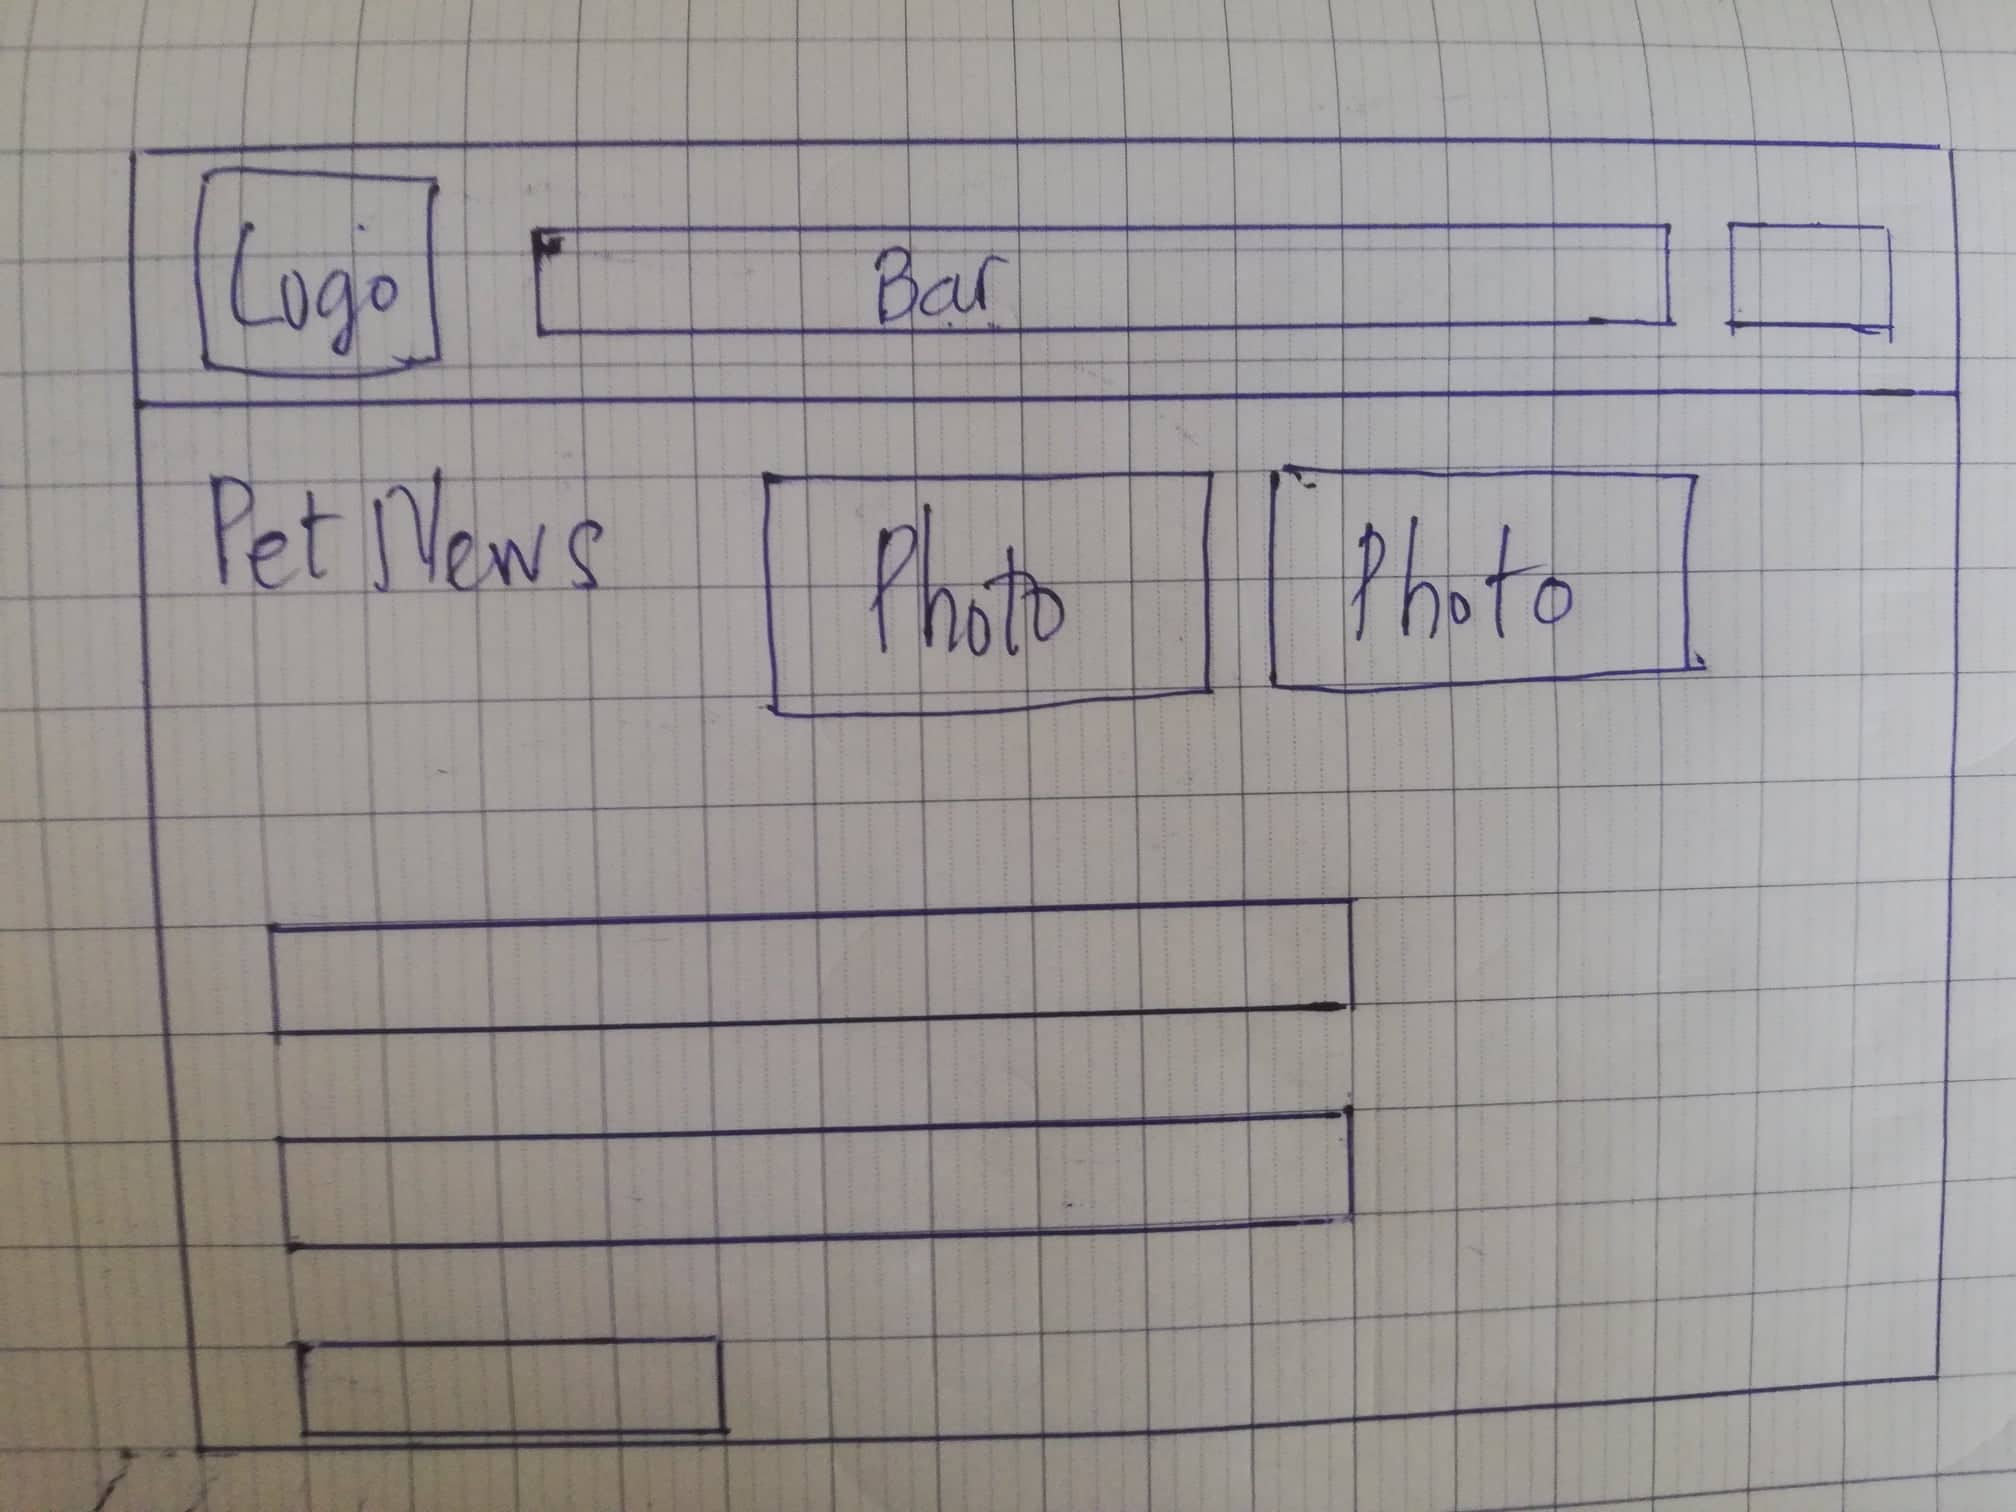 Logo
Bar
Pet News
Photo
Photo